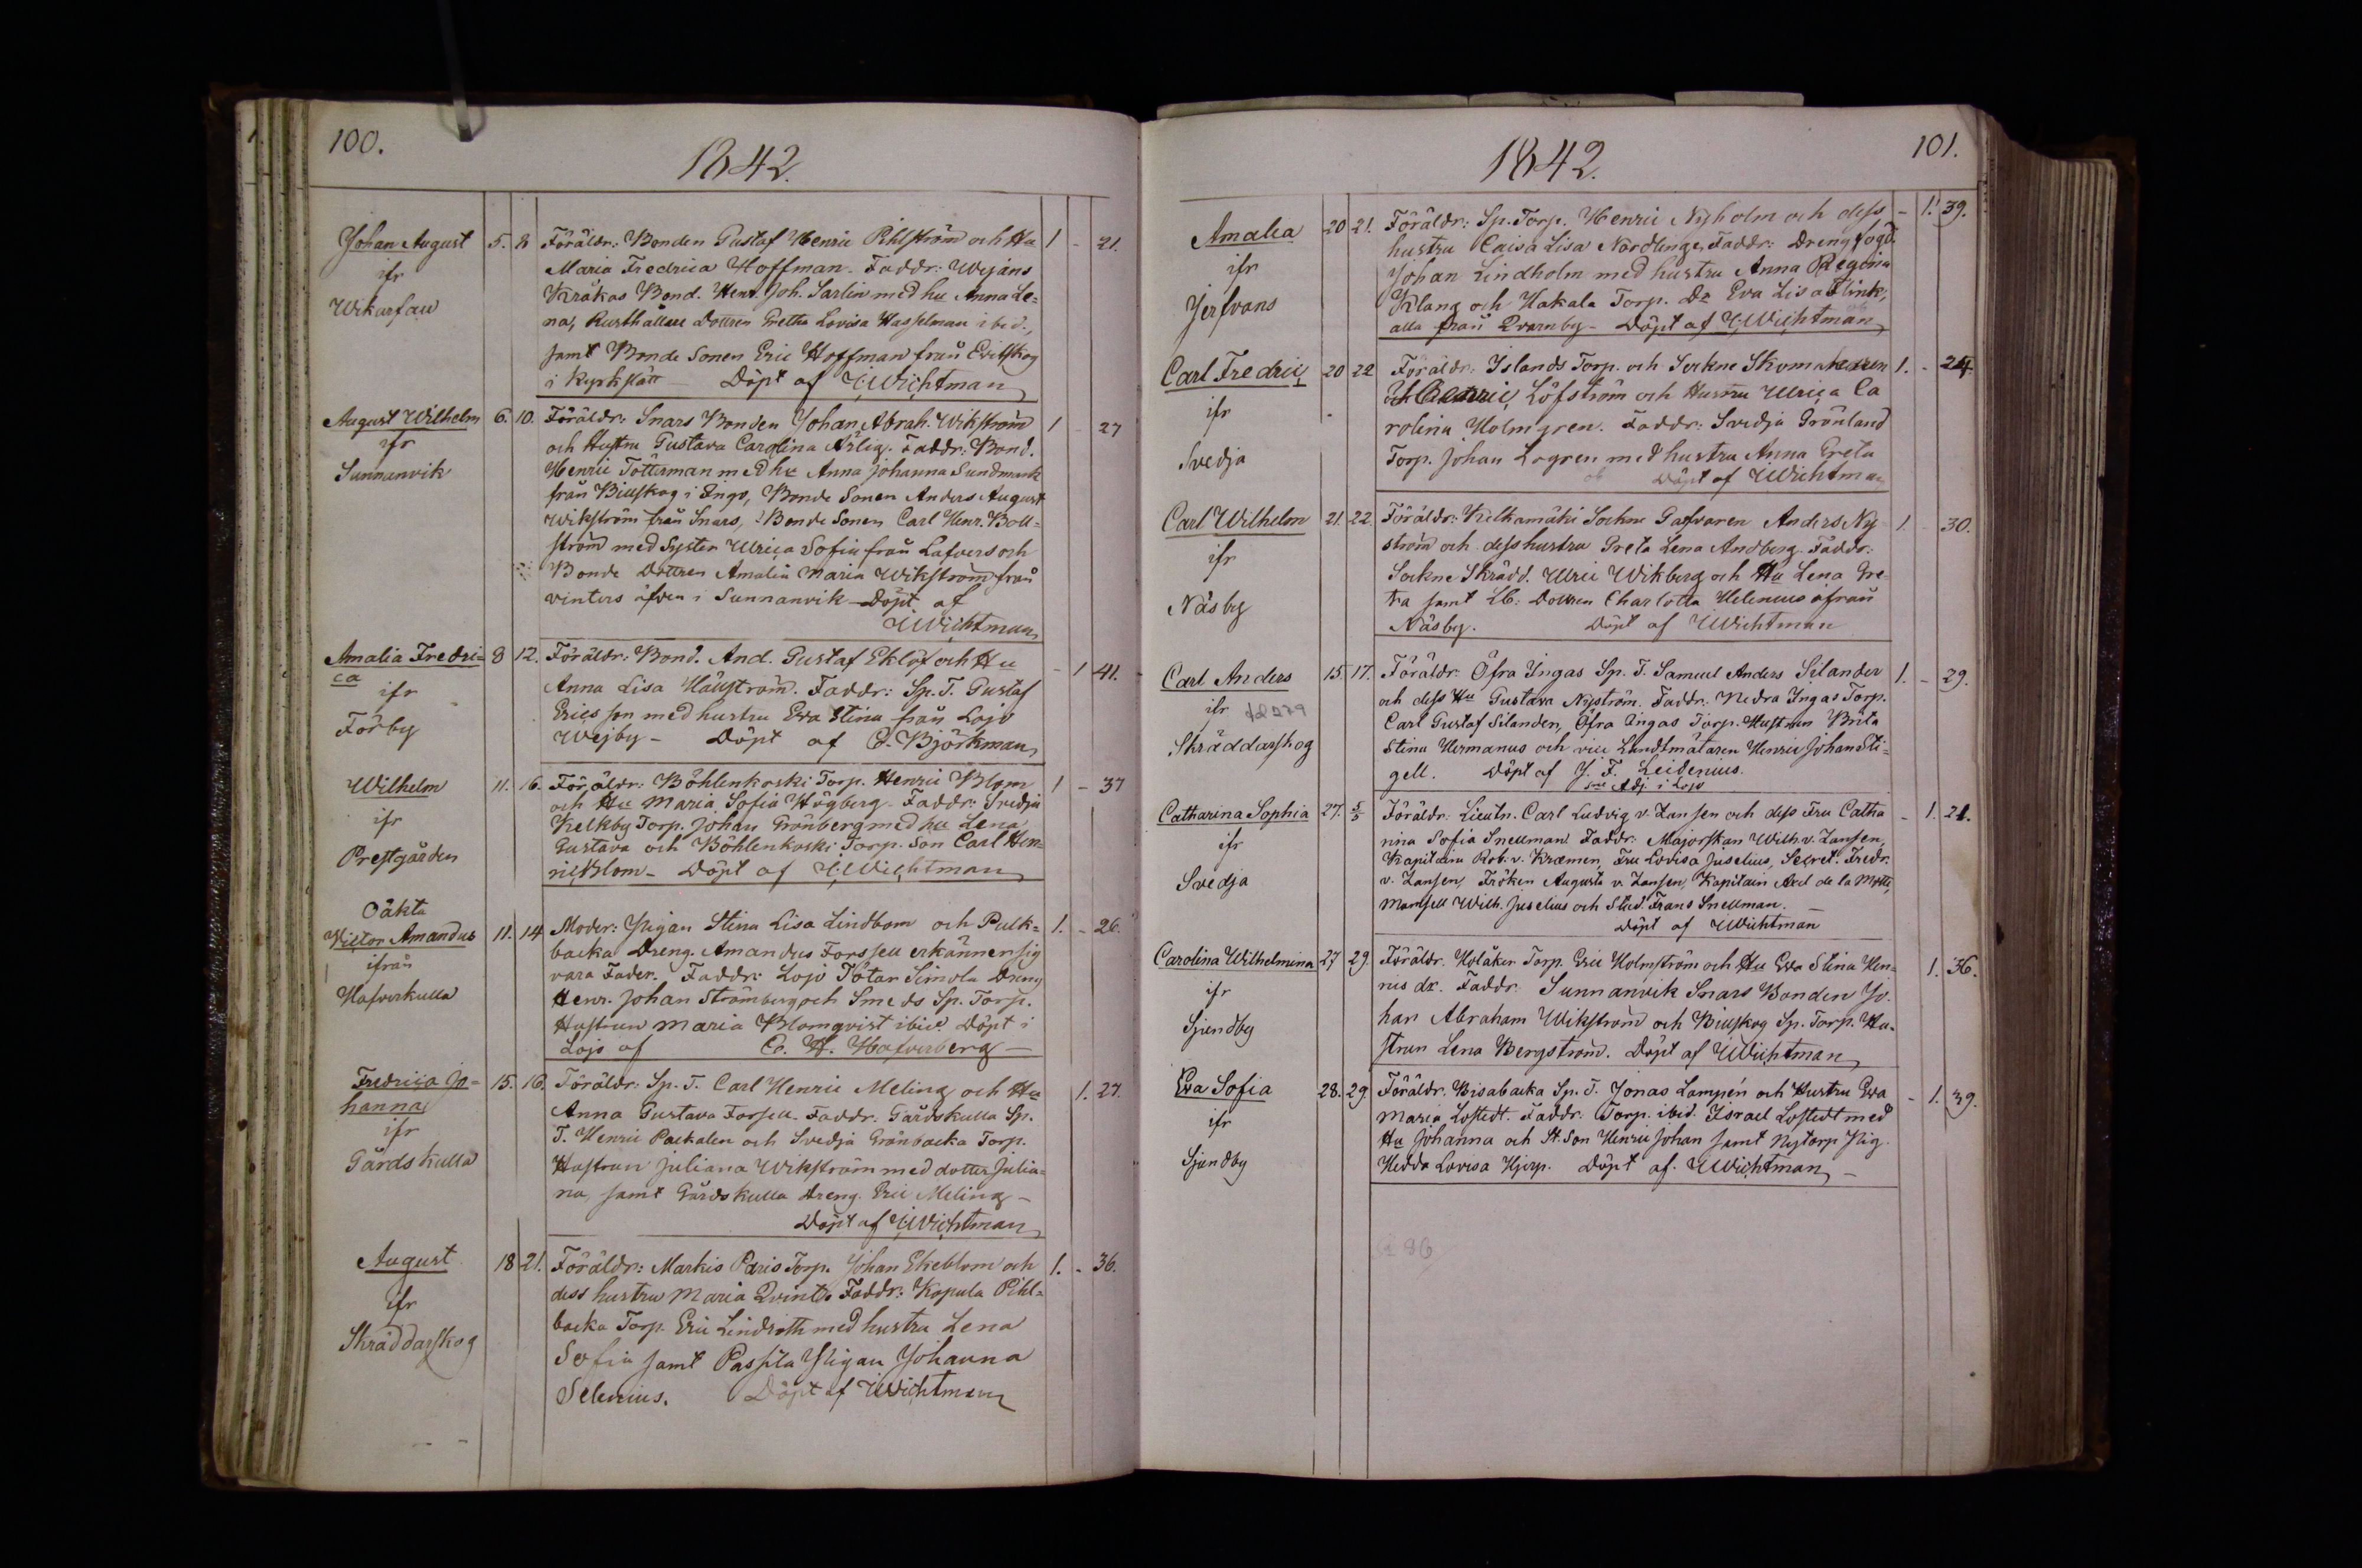 100.
1842.
Johan August 5. 8 Föräldr: Bonden Gustaf Henric Pihlström och Hu 1 - 21.
ifr Maria Fredrica Hoffman. Faddr: Wejans
Wikarfau Kråkas Bond. Henr. Joh. Sarlin med hu Anna Le=
na, Rusthållare dottren Gretha Lovisa Hasselman ibid.,
samt Bonde Sonen Eric Hoffman från Evitskog
i Kyrkslätt - Döpt af Wichtman
August Wilhelm 6. 10. Föräldr: Snars Bonden Johan Abrah. Wikström 1 - 27
ifr och Hustru Gustava Carolina Ärlig. Faddr: Bond.
Sunnanvik Henric Tötterman med hu Anna Johanna Sundmark
från Billskog i Ingo, Bonde Sonen Anders August
Wikström från Snars, Bonde Sonen Carl Henr. Boll=
ström med Syster Ulrica Sofia från Lafvers och
Bonde Dottren Amalia Maria Wikström från
winters äfven i Sunnanvik - Döpt af
Wichtman
Amalia Fredri= 8 12. Föräldr: Bond. And. Gustaf Eklöf och Hu - 1 41.
ca
ifr Anna Lisa Hällström. Faddr: Sp. T. Gustaf
Förby Ericsson med hustru Eva Stina från Lojo
Wejby - Döpt af C. Björkman
Wilhelm 11. 16. Föräldr: Böhlenkoski Torp. Henric Blom 1 - 37
ifr och Hu Maria Sofia Högberg - Faddr: Svedja
Prestgården Kelkby Torp. Johan Grönberg med hu Lena
Gustava och Böhlenkoski Torp. Son Carl Hen=
ric Blom - Döpt af Wichtman
Oäkta
Victor Amandus 11. 14 Moder: Pigan Stina Lisa Lindbom och Pulk= 1. - 26.
ifrån backa Dreng. Amandus Forssell erkänner sig
Hafverkulla vara Fader. Faddr: Lojo Tötar Simola Dreng
Henr. Johan Strömberg och Smeds Sp. Torp.
Hustrun Maria Blomqvist ibid. Döpt i
Lojo af C. H. Hafverberg -
Fredrica Jo= 15. 16. Föräldr: Sp. T. Carl Henric Meling och Hu 1. 27.
hanna Anna Gustava Forsell. Faddr. Gårdskulla Sp.
ifr T. Henric Packalen och Svedja Grönbacka Torp.
Gårdskulla Hustrun Juliana Wikström med dotter Julia=
na, samt Gårdskulla dreng Eric Meling -
Döpt af Wichtman
August 18 21. Föräldr: Markis Paris Torp. Johan Ekeblom och 1. - 36.
ifr dess hustru Maria Qvint. Faddr: Kopula Pihl=
Skräddarskog backa Torp. Eric Lindroth med hustru Lena
Sofia samt Passila Pigan Johanna
Selenius. Döpt af Wichtman
1842.
101.
Amalia 20 21. Föräldr: Sp. Torp. Henric Nyholm och dess - 1. 39.
ifr hustru Caisa Lisa Nordling. Faddr: Drengfogd.
Jerfvans Johan Lindholm med hustru Anna Regina
Klang och Hakala Torp. Dr Eva Lisa Flink,
alla från Qvarnby - Döpt af Wichtman
Carl Fredric 20 22 Föräldr: Islands Torp. och Sockne Skomakaren 1. - 24.
ifr Löfström och Hustru Ulrica Ca
Svedja rolina Holmgren. Faddr: Svedja Grönland
Torp. Johan Logren med hustru Anna Greta
Döpt af Wichtman
Carl Wilhelm 21. 22. Föräldr: Kelkamäki Sockne Garfvaren Anders Ny 1. - 30.
ifr ström och dess hustru Greta Lena Andberg. Faddr:
Näsby Sockne Skrädd. Ulric Wikberg och Hu Lena Gre
ta samt Lb: Dottren Charlotta Helenius ifrån
Näsby. Döpt af Wichtman
Carl Anders 15. 17. Föräldr: Öfra Ingas Sp. T. Samuel Anders Silander 1. - 29.
ifr och dess Hu Gustava Nyström. Faddr: Nedra Ingas Torp.
Skräddarskog Carl Gustaf Silander, Öfra Ingas Torp. Hustrun Brita
Stina Hermanus och vice Landtmätaren Henric Johan Sti=
gell. Döpt af J. F. Leidenius.
Adj. i Lojo
Catharina Sophia 27. 5/5 Föräldr: Lieutn. Carl Ludvig v. Zansen och dess Fru Catha - 1. 21.
ifr rina Sofia Snellman. Faddr: Majorskan Wilh. v. Zansen,
Svedja Kapitain Rob. v. Kræmer, Fru Lovisa Juselius, Secret. Fredr.
v. Zansen, Fröken Augusta v. Zansen, Kapitain Axel de la Motte,
Mamsell Wilh. Juselius och Stud. Frans Snellman. -
Döpt af Wichtman
Carolina Wilhelmina 27 29. Föräldr. Holåker Torp. Eric Holmström och Hu Eva Stina Hen= 1. 36.
ifr ris dr. Faddr. Sunnanvik Snars Bonden Jo.
Sjundby han Abraham Wikström och Billskog Sp. Torp. Hu=
strun Lena Bergström. Döpt af Wichtman
Eva Sofia 28. 29. Föräldr. Bisabacka Sp. T. Jonas Lampén och Hustru Eva - 1. 39.
ifr Maria Lofstedt. Faddr: Torp. ibid. Israel Lofstedt med
Sjundby Hu Johanna och St. Son Henric Johan samt Nytorp Pig.
Hedda Lovisa Hjerp. Döpt af Wichtman -